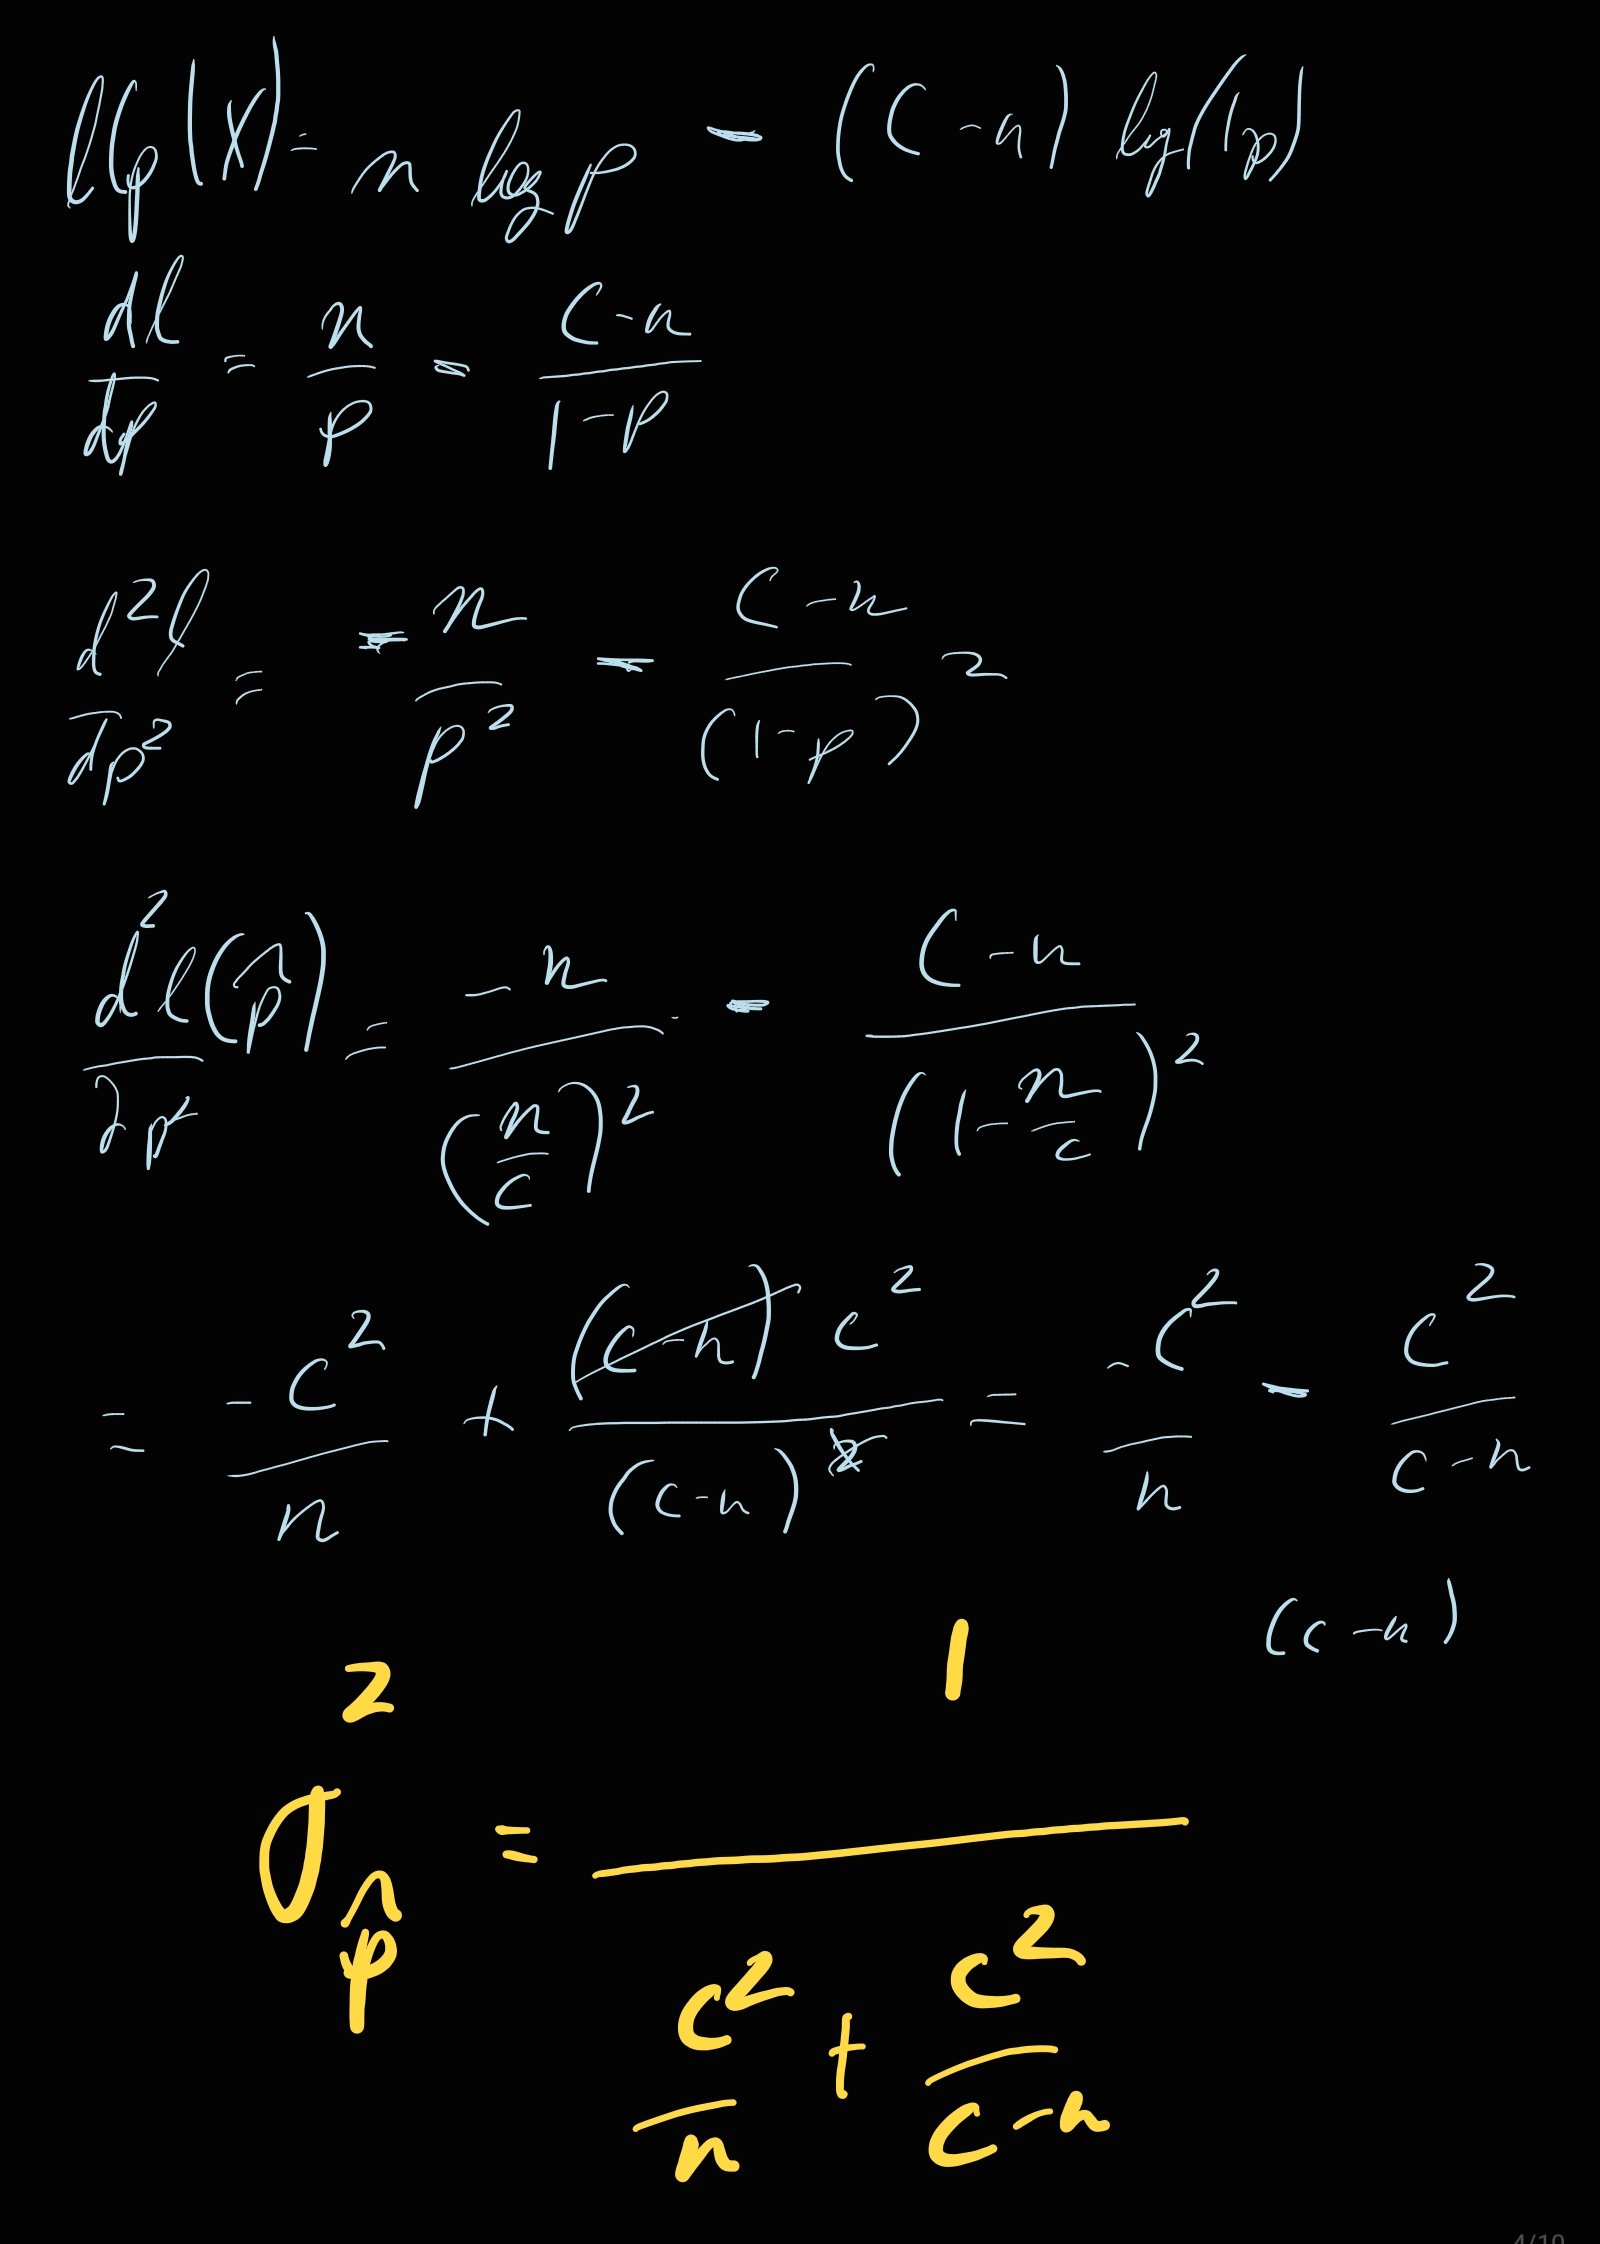 ll_p(X) = n log p - (C-n) log(1p)
dl/dp = n/p - (C-n)/(1-p)
d²l/dp² = -n/p² - (C-n)/(1-p)²
d²l(p̂)/∂p² = -n/(n/c)² - (C-n)/(1-n/c)²
= -c²/n + (c-n)c²/(c-n)² = -c²/n - c²/(c-n)
(c-n)
σ²_p̂ = 1/(c²/n + c²/(c-n))
4/10